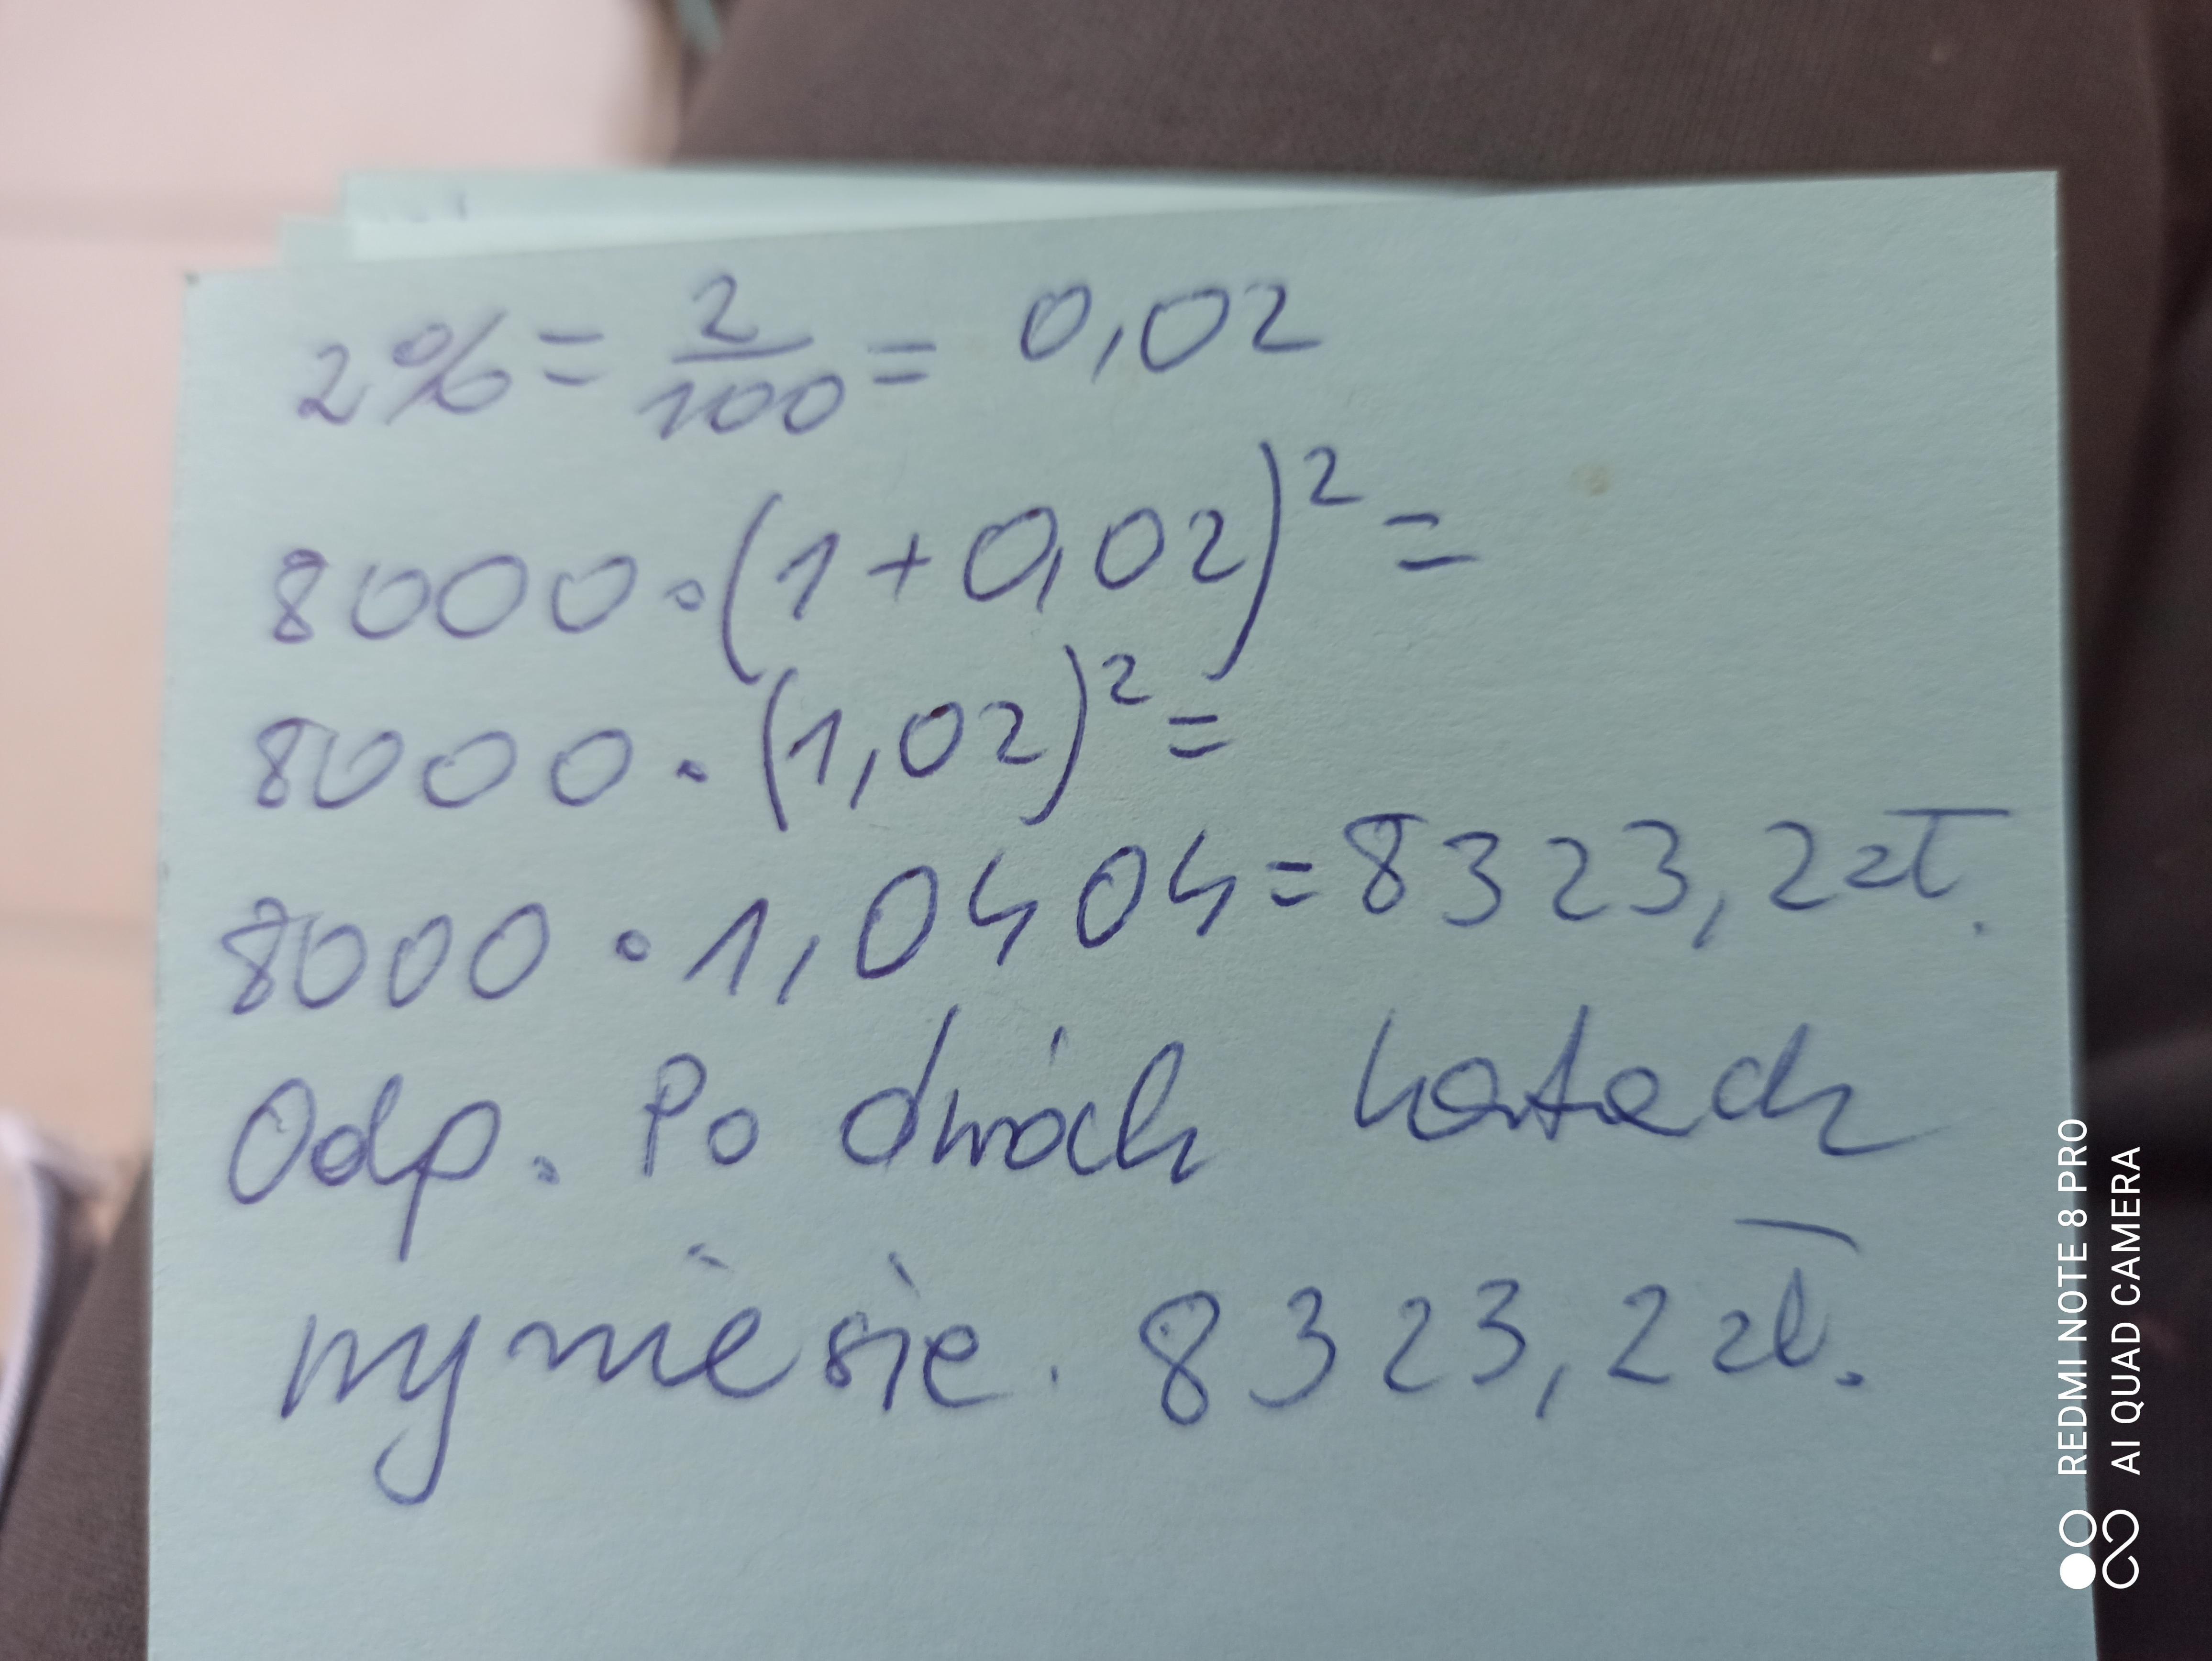 2% = 2/100 = 0,02
8000 · (1 + 0,02)² =
8000 · (1,02)² =
8000 · 1,0404 = 8323,2 zł.
Odp. Po dwóch latach
wyniesie. 8323,2 zł.
REDMI NOTE 8 PRO
AI QUAD CAMERA